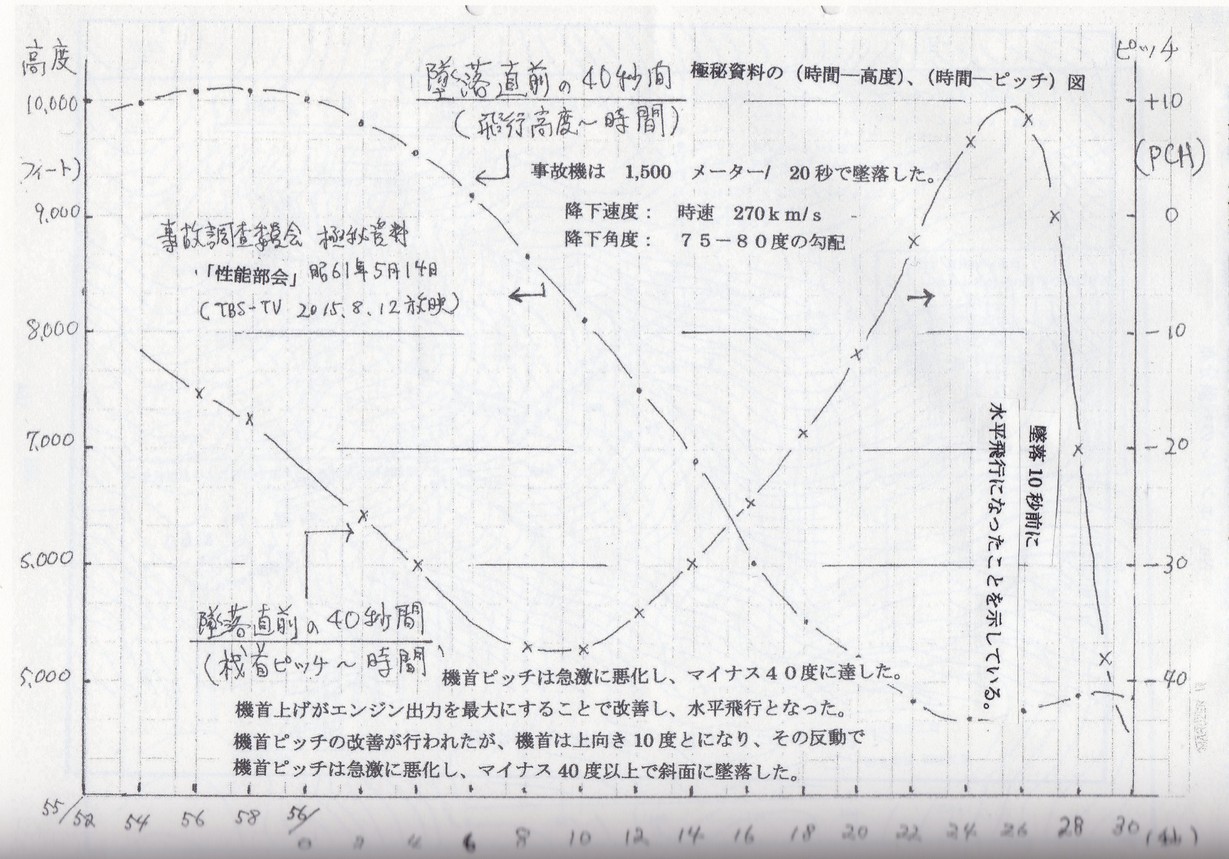 高度
ピッチ
極秘資料の（時間―高度）、（時間―ピッチ）図
墜落直前の40秒間
(飛行高度～時間)
10,000
+10
フィート)
(PCH)
事故機は 1,500 メーター/ 20秒で墜落した。
9,000
0
降下速度： 時速 270ｋｍ/ｓ
降下角度： ７５－８０度の勾配
事故調査委員会 極秘資料
「性能部会」昭61年5月14日
(TBS-TV 2015.8.12放映)
8,000
-10
墜落10秒前に
水平飛行になったことを示している。
7,000
-20
6,000
-30
墜落直前の40秒間
(機首ピッチ～時間)
5,000
-40
機首ピッチは急激に悪化し、マイナス４０度に達した。
機首上げがエンジン出力を最大にすることで改善し、水平飛行となった。
機首ピッチの改善が行われたが、機首は上向き10度とになり、その反動で
機首ピッチは急激に悪化し、マイナス40度以上で斜面に墜落した。
55/52 54 56 58 56/0 2 4 6 8 10 12 14 16 18 20 22 24 26 28 30